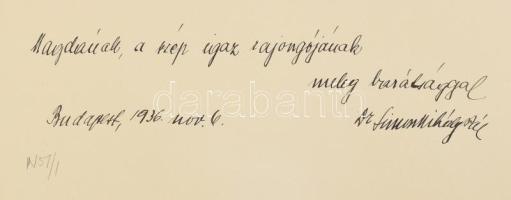 Magdának, a szép igaz rajongójának
meleg barátsággal
Budapest, 1936. nov. 6.
Dr Simon Mihályné
darabanth